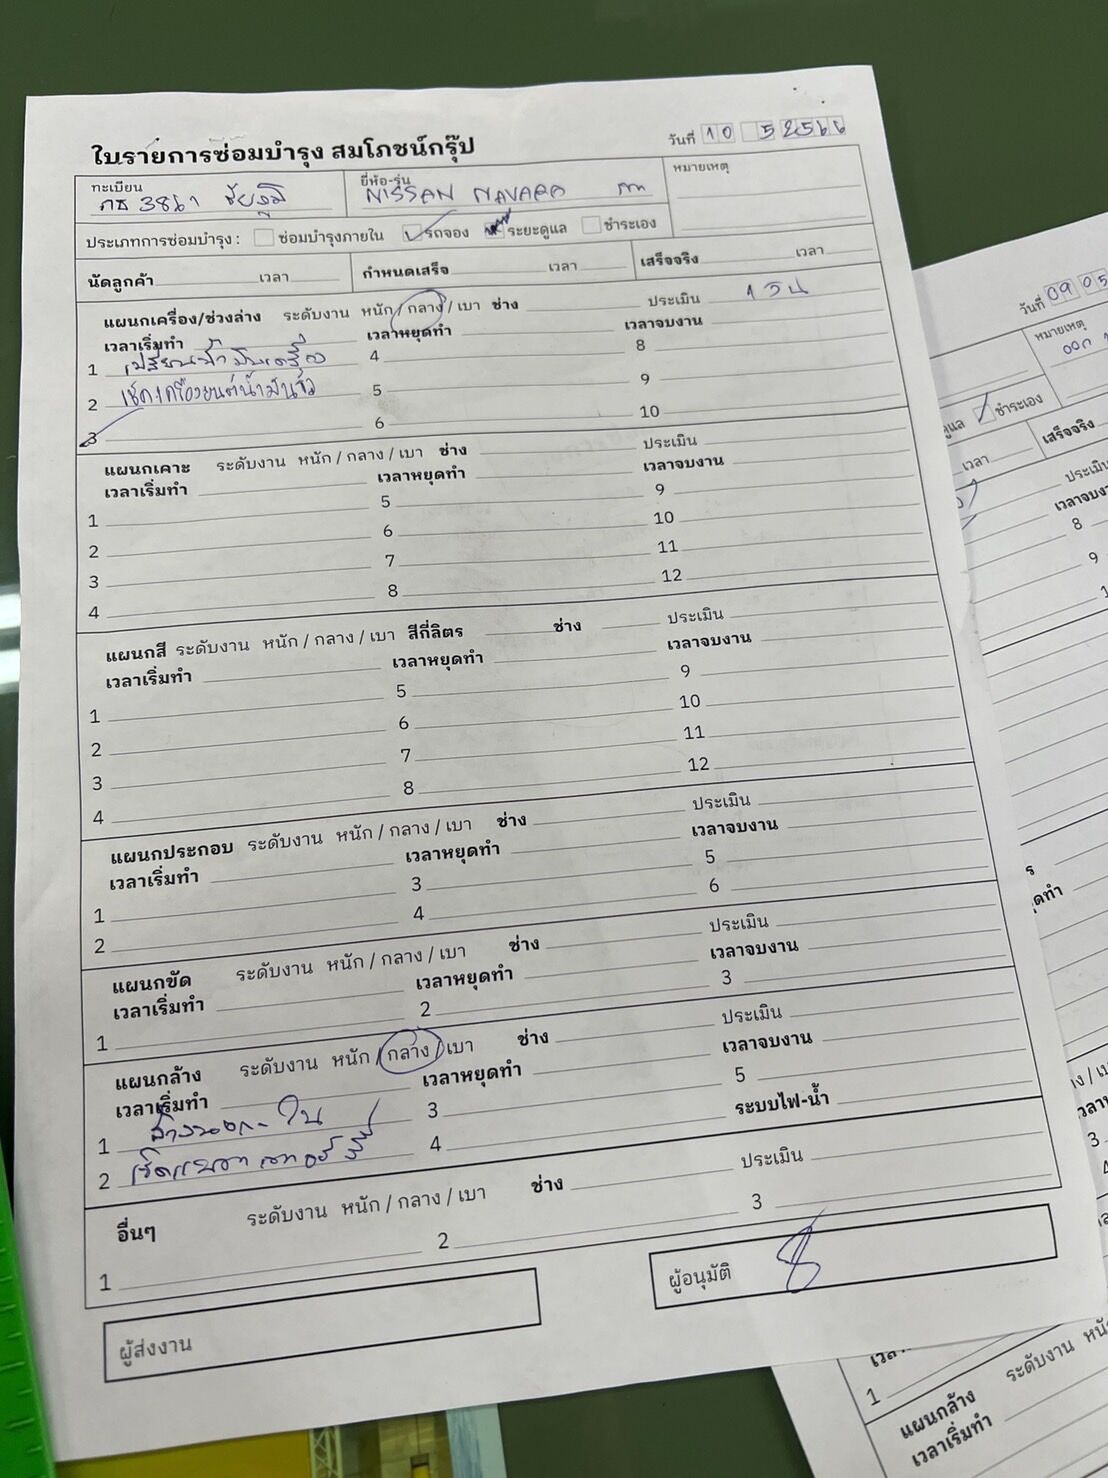 ใบรายการซ่อมบำรุง สมโภชน์กรุ๊ป
วันที่ 10 5 2566
ทะเบียน
3861 ชัยภูมิ
ยี่ห้อ-รุ่น
NISSAN NAVARA
หมายเหตุ
ประเภทการซ่อมบำรุง : ซ่อมบำรุงภายใน รถจอง ระยะดูแล ชำระเอง
นัดลูกค้า เวลา กำหนดเสร็จ เวลา เสร็จจริง เวลา
แผนกเครื่อง/ช่วงล่าง ระดับงาน หนัก / กลาง / เบา ช่าง ประเมิน 1 วัน
เวลาเริ่มทำ เวลาหยุดทำ เวลาจบงาน
1 เปลี่ยนน้ำมันเครื่อง 4 8
2 เช็คเครื่องยนต์น้ำมันรั่ว 5 9
3 6 10
แผนกเคาะ ระดับงาน หนัก / กลาง / เบา ช่าง ประเมิน
เวลาเริ่มทำ เวลาหยุดทำ เวลาจบงาน
1 5 9
2 6 10
3 7 11
4 8 12
แผนกสี ระดับงาน หนัก / กลาง / เบา สีกี่ลิตร ช่าง ประเมิน
เวลาเริ่มทำ เวลาหยุดทำ เวลาจบงาน
1 5 9
2 6 10
3 7 11
4 8 12
แผนกประกอบ ระดับงาน หนัก / กลาง / เบา ช่าง ประเมิน
เวลาเริ่มทำ เวลาหยุดทำ เวลาจบงาน
1 3 5
2 4 6
แผนกขัด ระดับงาน หนัก / กลาง / เบา ช่าง ประเมิน
เวลาเริ่มทำ เวลาหยุดทำ เวลาจบงาน
1 2 3
แผนกล้าง ระดับงาน หนัก / กลาง / เบา ช่าง ประเมิน
เวลาเริ่มทำ เวลาหยุดทำ เวลาจบงาน
1 ล้างนอก-ใน 3 5
2 เช็คแบตเตอรี่ 4 ระบบไฟ-น้ำ
อื่นๆ ระดับงาน หนัก / กลาง / เบา ช่าง ประเมิน
1 2 3
ผู้ส่งงาน
ผู้อนุมัติ
วันที่ 09 05
หมายเหตุ
ออก
ดูแล ชำระเอง
เวลา เสร็จจริง
ประเมิน
เวลาจบงาน
8
9
ดทำ
3
ระดับงาน หนัก
1
แผนกล้าง
เวลาเริ่มทำ